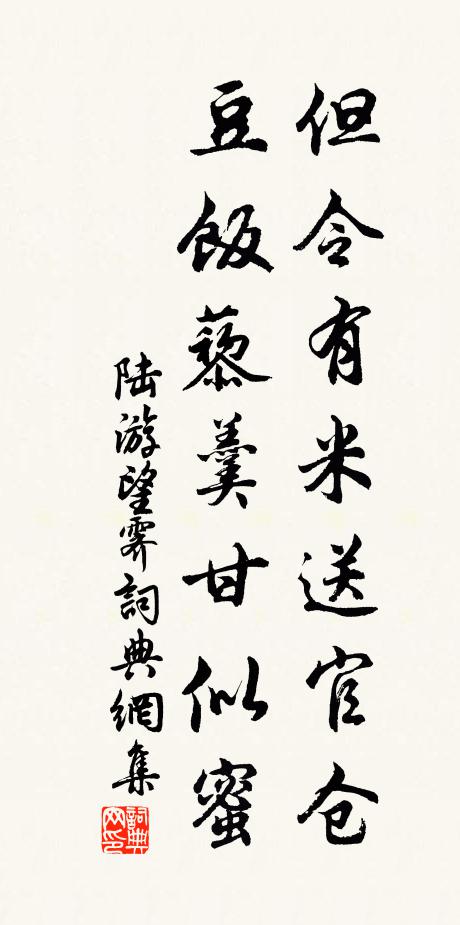 但令有米送官仓
豆飯藜羹甘似蜜
陆游望霁詞典網集
詞典网印